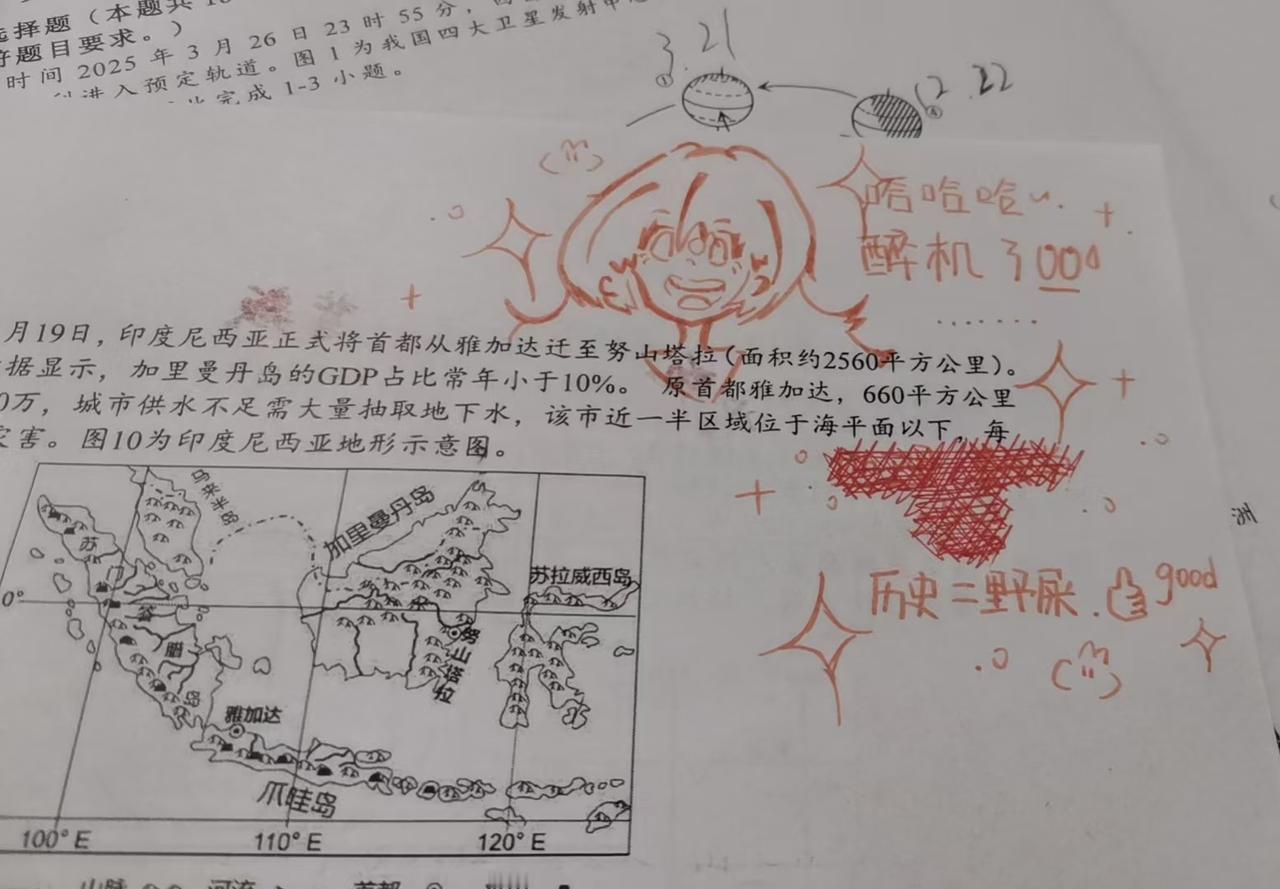 选择题（本题共
符题目要求。）
时间 2025 年 3 月 26 日 23 时 55 分，
进入预定轨道。图 1 为我国四大卫星发射中
完成 1-3 小题。
3.21
①
12.22
④
哈哈哈~.
醉机了000
.......
月19日，印度尼西亚正式将首都从雅加达迁至努山塔拉（面积约2560平方公里）。
据显示，加里曼丹岛的GDP占比常年小于10%。 原首都雅加达，660平方公里
0万，城市供水不足需大量抽取地下水，该市近一半区域位于海平面以下，每
灾害。图10为印度尼西亚地形示意图。
历史=野屎.good
马来半岛
加里曼丹岛
苏拉威西岛
苏门答腊岛
0°
努山塔拉
雅加达
爪哇岛
100° E
110° E
120° E
山脉
河流
首都